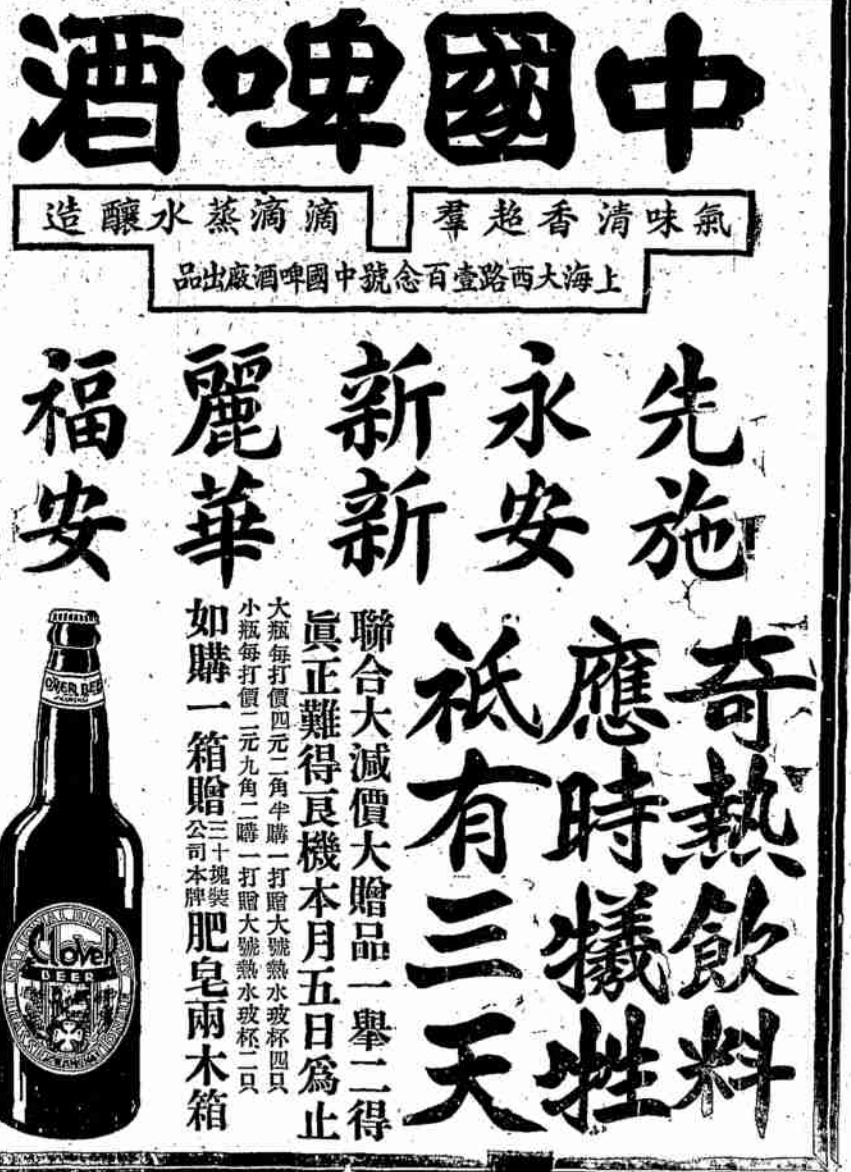 中國啤酒
氣味清香超羣
滴滴蒸水釀造
上海大西路壹百念號中國啤酒廠出品
先施
永安
新新
麗華
福安
奇熱飲料
應時犧牲
祇有三天
聯合大減價大贈品一舉二得
眞正難得良機本月五日爲止
大瓶每打價四元二角半購一打贈大號熱水玻杯四只
小瓶每打價二元九角二購一打贈大號熱水玻杯二只
如購一箱贈三十塊裝公司本牌肥皂兩木箱
CLOVER BEER
NATIONAL BREWERY
Clover
BEER